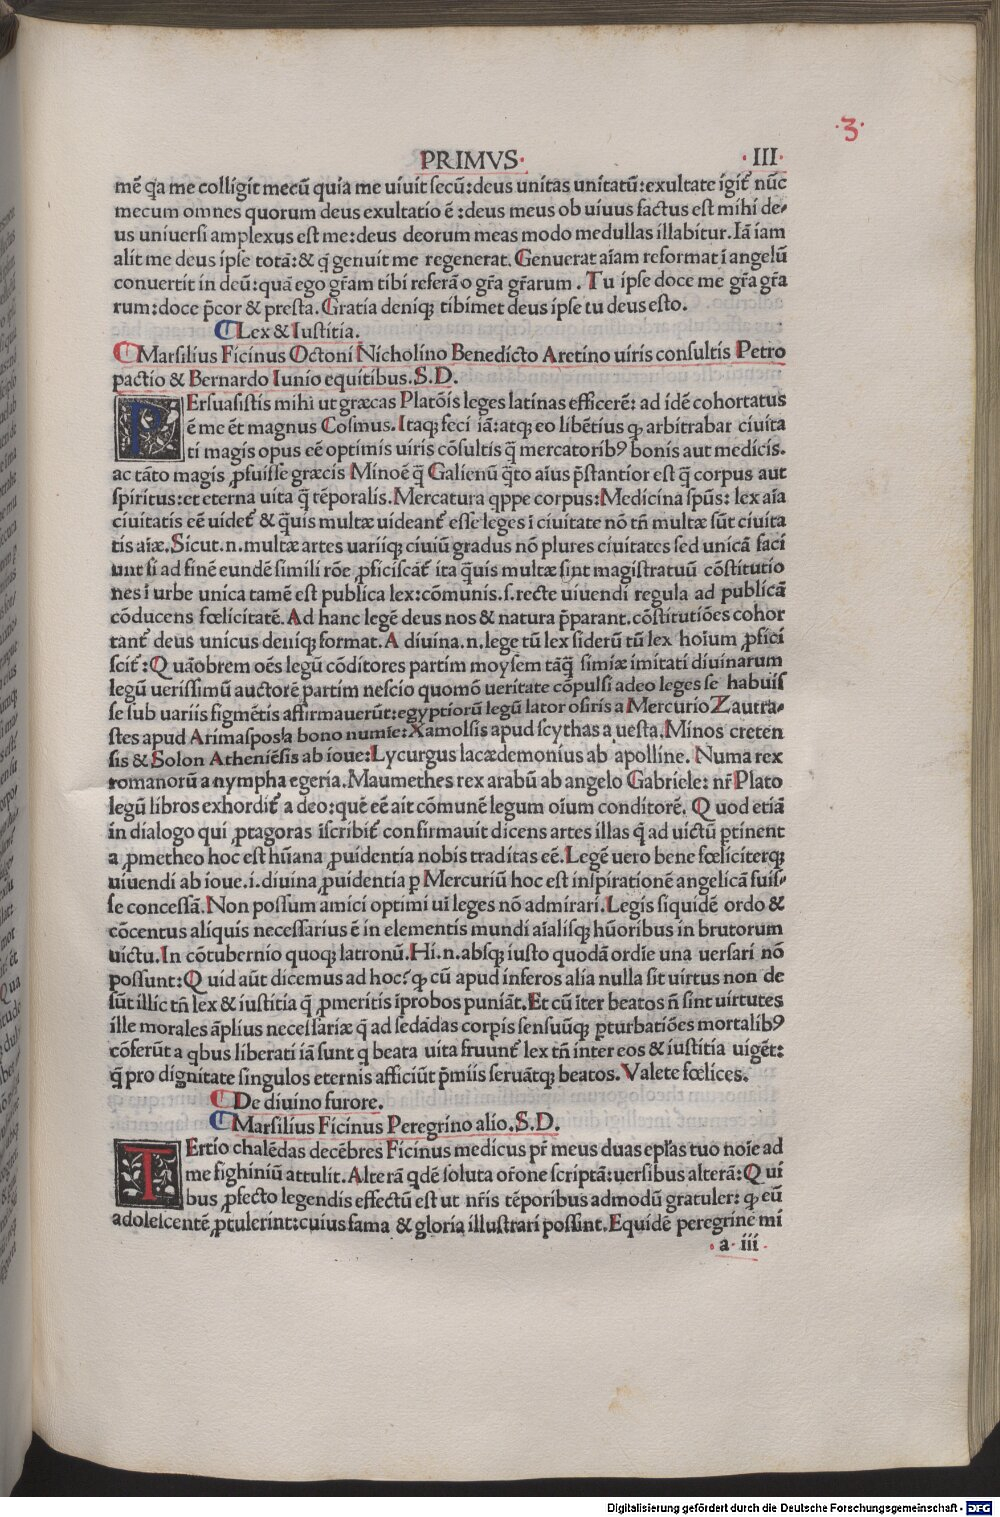 ·3·
PRIMVS· ·III·
mē q̇a me colligit mecū quia me uiuit ſecū:deus unitas unitatū:exultate igit᷑ nūc
mecum omnes quorum deus exultatio ē :deus meus ob uiuus factus eſt mihi de-
us uniuerſi amplexus eſt me:deus deorum meas modo medullas illabitur.Iā iam
alit me deus ipſe totā:& q̄ genuit me regenerat.Genuerat aīam reformat ī angelū
conuertit in deū:quā ego gr̄am tibi referā o gr̄a gr̄arum. Tu ipſe doce me gr̄a gr̄a
rum:doce p̄cor & preſta.Gratia deniq; tibimet deus ipſe tu deus eſto.
Lex & Iuſtitia.
Marſilius Ficinus Octoni Nicholino Benedicto Aretino uiris conſultis Petro
pactio & Bernardo Iunio equitibus.S.D.
PErſuaſiſtis mihi ut græcas Platōis leges latinas efficerē: ad idē cohortatus
ē me ēt magnus Coſmus.Itaq; feci iā:atq; eo libētius ꝙ arbitrabar ciuita
ti magis opus eē optimis uiris cōſultis q̄ mercatorib9 bonis aut medicis.
ac tāto magis ꝓfuiſſe græcis Minoē q̄ Galienū q̄to aīus p̄ſtantior eſt q̄ corpus aut
ſpiritus:et eterna uita q̄ tēporalis.Mercatura qppe corpus:Medicina ſpūs: lex aīa
ciuitatis eē uidet᷑ & q̄uis multæ uideant᷑ eſſe leges ī ciuitate nō tn̄ multæ ſūt ciuita
tis aīæ.Sicut.n.multæ artes uariiq; ciuiū gradus nō plures ciuitates ſed unicā faci
unt ſi ad finē eundē ſimili rōe ꝓficiſcāt᷑ ita q̄uis multæ ſint magiſtratuū cōſtitutio
nes ī urbe unica tamē eſt publica lex:cōmunis.ſ.recte uiuendi regula ad publicā
cōducens fœlicitatē.Ad hanc legē deus nos & natura p̄parant.cōſtitutiōes cohor
tant᷑ deus unicus deniq; format.A diuina.n.lege tū lex ſiderū tū lex hoīum ꝓfici
ſcit᷑:Quāobrem oēs legū cōditores partim moyſem tāq̄ ſimiæ imitati diuinarum
legū ueriſſimū auctorē partim neſcio quomō ueritate cōpulſi adeo leges ſe habuiſ
ſe ſub uariis figmētis affirmauerūt:egyptiorū legū lator oſiris a Mercurio Zautra-
ſtes apud Arimaſpos a bono numīe:Xamolſis apud ſcythas a ueſta.Minos creten
ſis & Solon Atheniēſis ab ioue:Lycurgus lacædemonius ab apolline. Numa rex
romanorū a nympha egeria.Maumethes rex arabū ab angelo Gabriele: nr̄ Plato
legū libros exhordit᷑ a deo:quē eē ait cōmunē legum oīum conditorē. Quod etiā
in dialogo qui ꝓtagoras īſcribit᷑ confirmauit dicens artes illas q̄ ad uictū ꝑtinent
a ꝓmetheo hoc eſt hūana ꝓuidentia nobis traditas eē.Legē uero bene fœliciterq;
uiuendi ab ioue.i.diuina ꝓuidentia ꝑ Mercuriū hoc eſt inſpirationē angelicā fuiſ-
ſe conceſſā.Non poſſum amici optimi ui leges nō admirari.Legis ſiquidē ordo &
cōcentus aliquis neceſſarius ē in elementis mundi aīaliſq; hūoribus in brutorum
uictu.In cōtubernio quoq; latronū.Hi.n.abſq; iuſto quodā ordīe una uerſari nō
poſſunt:Quid aūt dicemus ad hoc? ꝙ cū apud inferos alia nulla ſit uirtus non de
ſūt illic tn̄ lex & iuſtitia q̄ ꝓmeritis īprobos puniāt.Et cū īter beatos n̄ ſint uirtutes
ille morales āplius neceſſariæ q̄ ad ſedādas corpis ſenſuūq; ꝑturbatiōes mortalib9
cōferūt a qbus liberati iā ſunt q beata uita fruunt᷑ lex tn̄ inter eos & iuſtitia uigēt:
q̄ pro dignitate ſingulos eternis afficiūt p̄miis ſeruātq; beatos.Valete fœlices.
De diuino furore.
Marſilius Ficinus Peregrino alio.S.D.
TErtio chalēdas decēbres Ficinus medicus pr̄ meus duas epl̄as tuo noīe ad
me fighiniū attulit.Alterā qdē ſoluta or̄one ſcriptā:uerſibus alterā:Qui
bus ꝓfecto legendis effectū eſt ut nr̄is tēporibus admodū gratuler: ꝙ eū
adoleſcentē ꝓtulerint:cuius fama & gloria illuſtrari poſſint.Equidē peregrine mi
a·iii
Digitalisierung gefördert durch die Deutsche Forschungsgemeinschaft - DFG